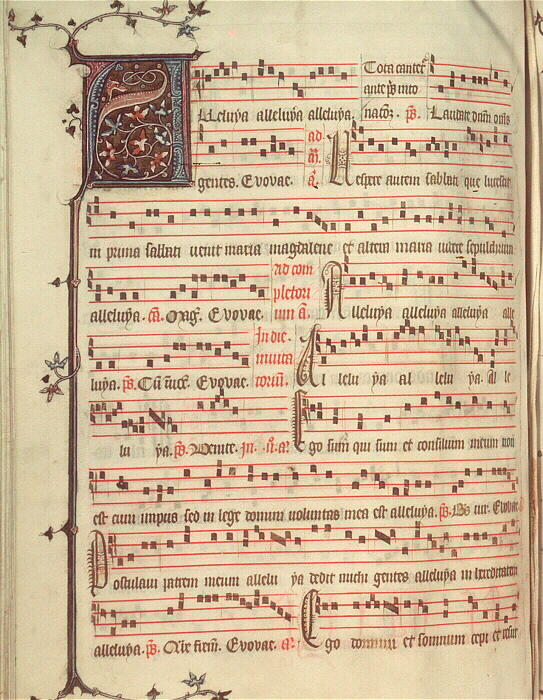 Tota cantet᷑
ante p̄s imo
Alleluya alleluya alleluya. nac̄oz. p̄s. Laudate dn̄m om̄s
ad
m̄.
gentes. Evovae. a. Vespere autem sabbati que lucescit
in prima sabbati venit maria magdalene et altera maria videre sepulchrum
ad com
pletori
alleluya. c̄a. Mag̃. Evovae. um a. Alleluya alleluya alleluya alle
In die.
invita
luya. p̄s. Cū īuoc̄. Evovae. torium. Alelu ya al lelu ya. al le
lu ya. p̄s. Venite. In .i. n̄. a. Ego sum qui sum et consilium meum non
est cum impiis sed in lege domini voluntas mea est alleluya. p̄s. B̄s vir. Evovae
Postulavi patrem meum allelu ya dedit michi gentes alleluya in hereditatem
alleluya. p̄s. Q̄re frem̄. Evovae. a. Ego dormivi et somnum cepi et resur